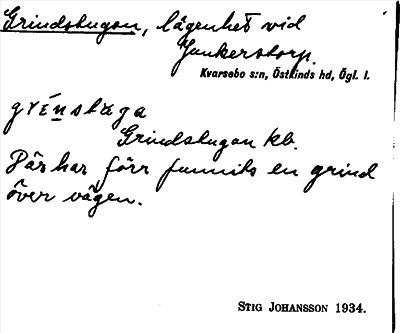 Grindstugan, lägenhet vid
Junkerstorp.
Kvarsebo s:n, Östkinds hd, Ögl. l.
grénstæga
Grindstugan kb.
Där har förr funnits en grind
över vägen.
STIG JOHANSSON 1934.